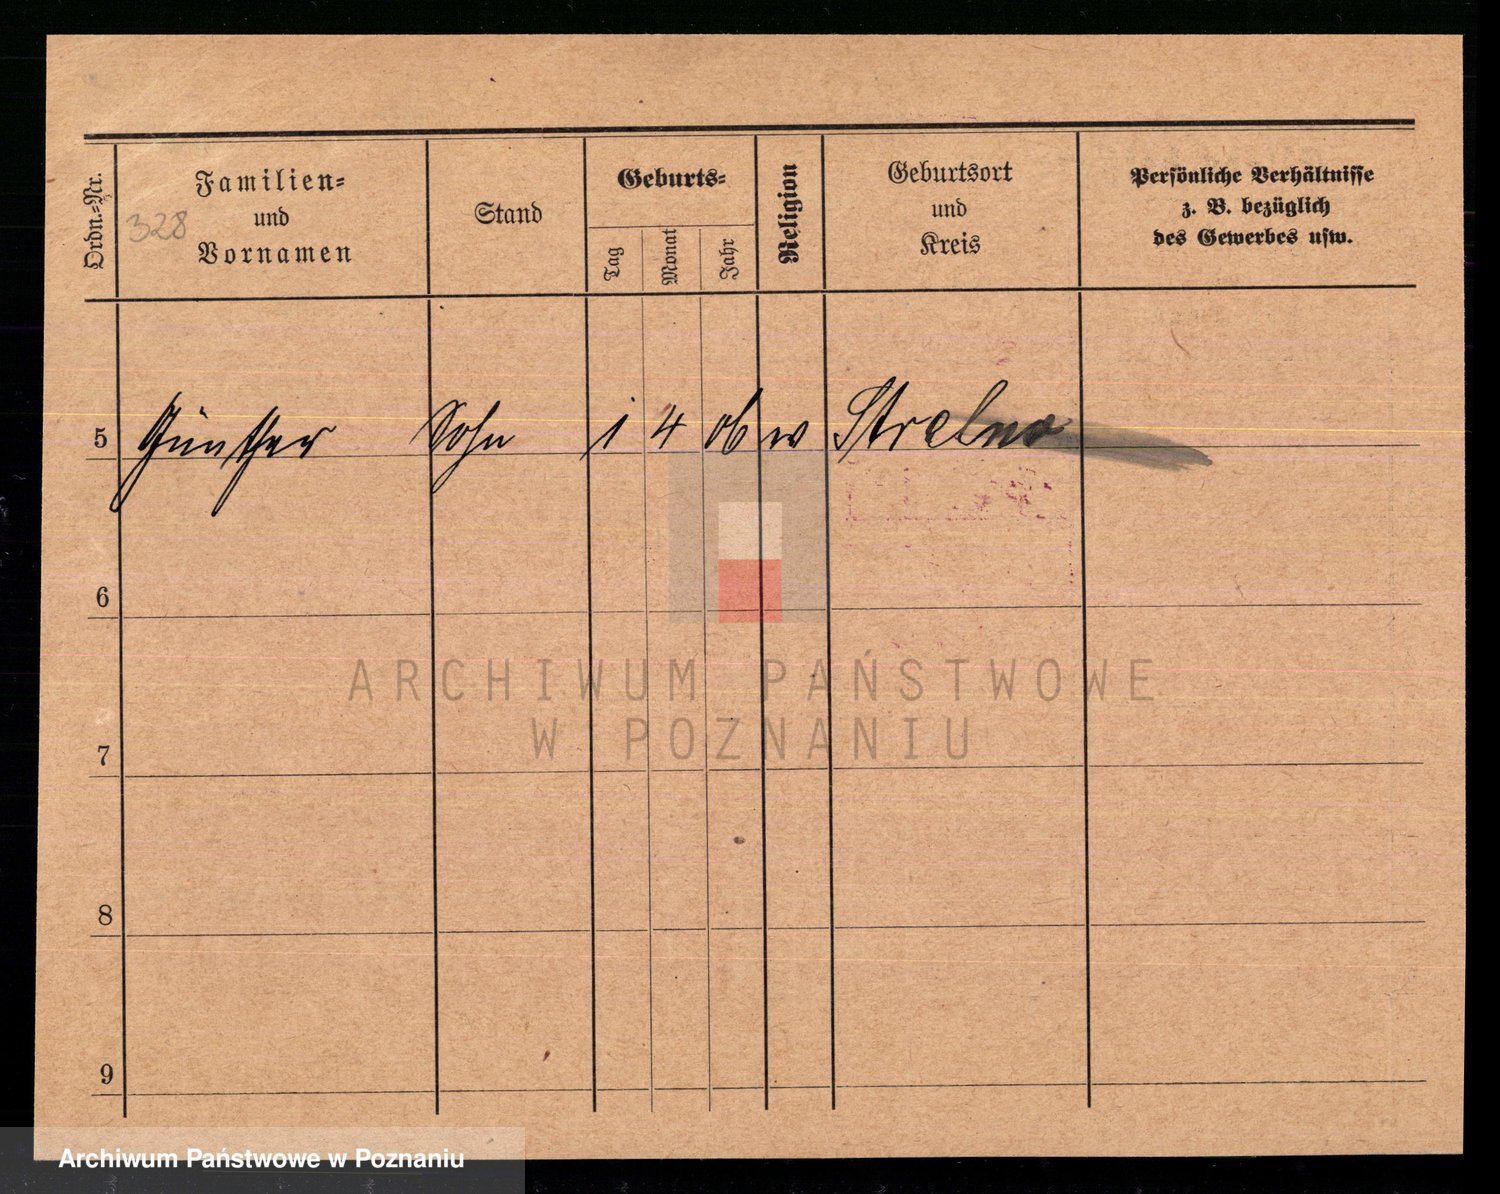 Ordn.-Nr.
Familien-
und
Vornamen
328
Stand
Geburts-
Tag
Monat
Jahr
Religion
Geburtsort
und
Kreis
Persönliche Verhältnisse
z. B. bezüglich
des Gewerbes usw.
5 Günther Sohn 1 4 06 w Strelno
6
7
8
9
ARCHIWUM PAŃSTWOWE
W POZNANIU
Archiwum Państwowe w Poznaniu